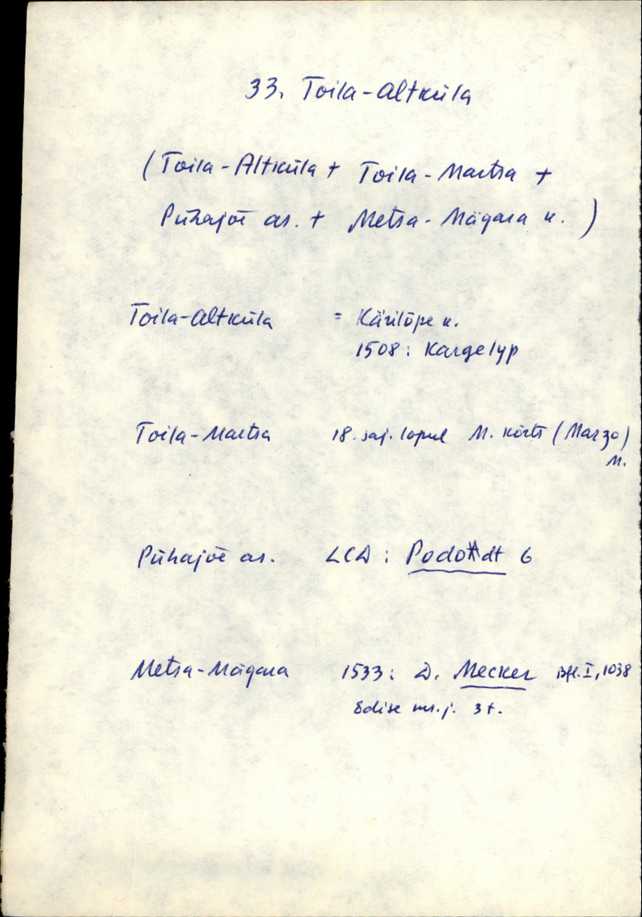 33. Toila-Altküla
(Toila-Altküla + Toila-Martsa +
Pühajõe as. + Metsa-Mägara k.)
Toila-Altküla = Kärilõpe k.
1508: Kargelyp
Toila-Martsa 18. saj. lopul M. kõrts (Marzo)
M.
Pühajõe as. LCD: Podoxdt 6
Metsa-Mägara 1533: D. Mecker Bfl. I, 1038
Edise ms.j. 3t.